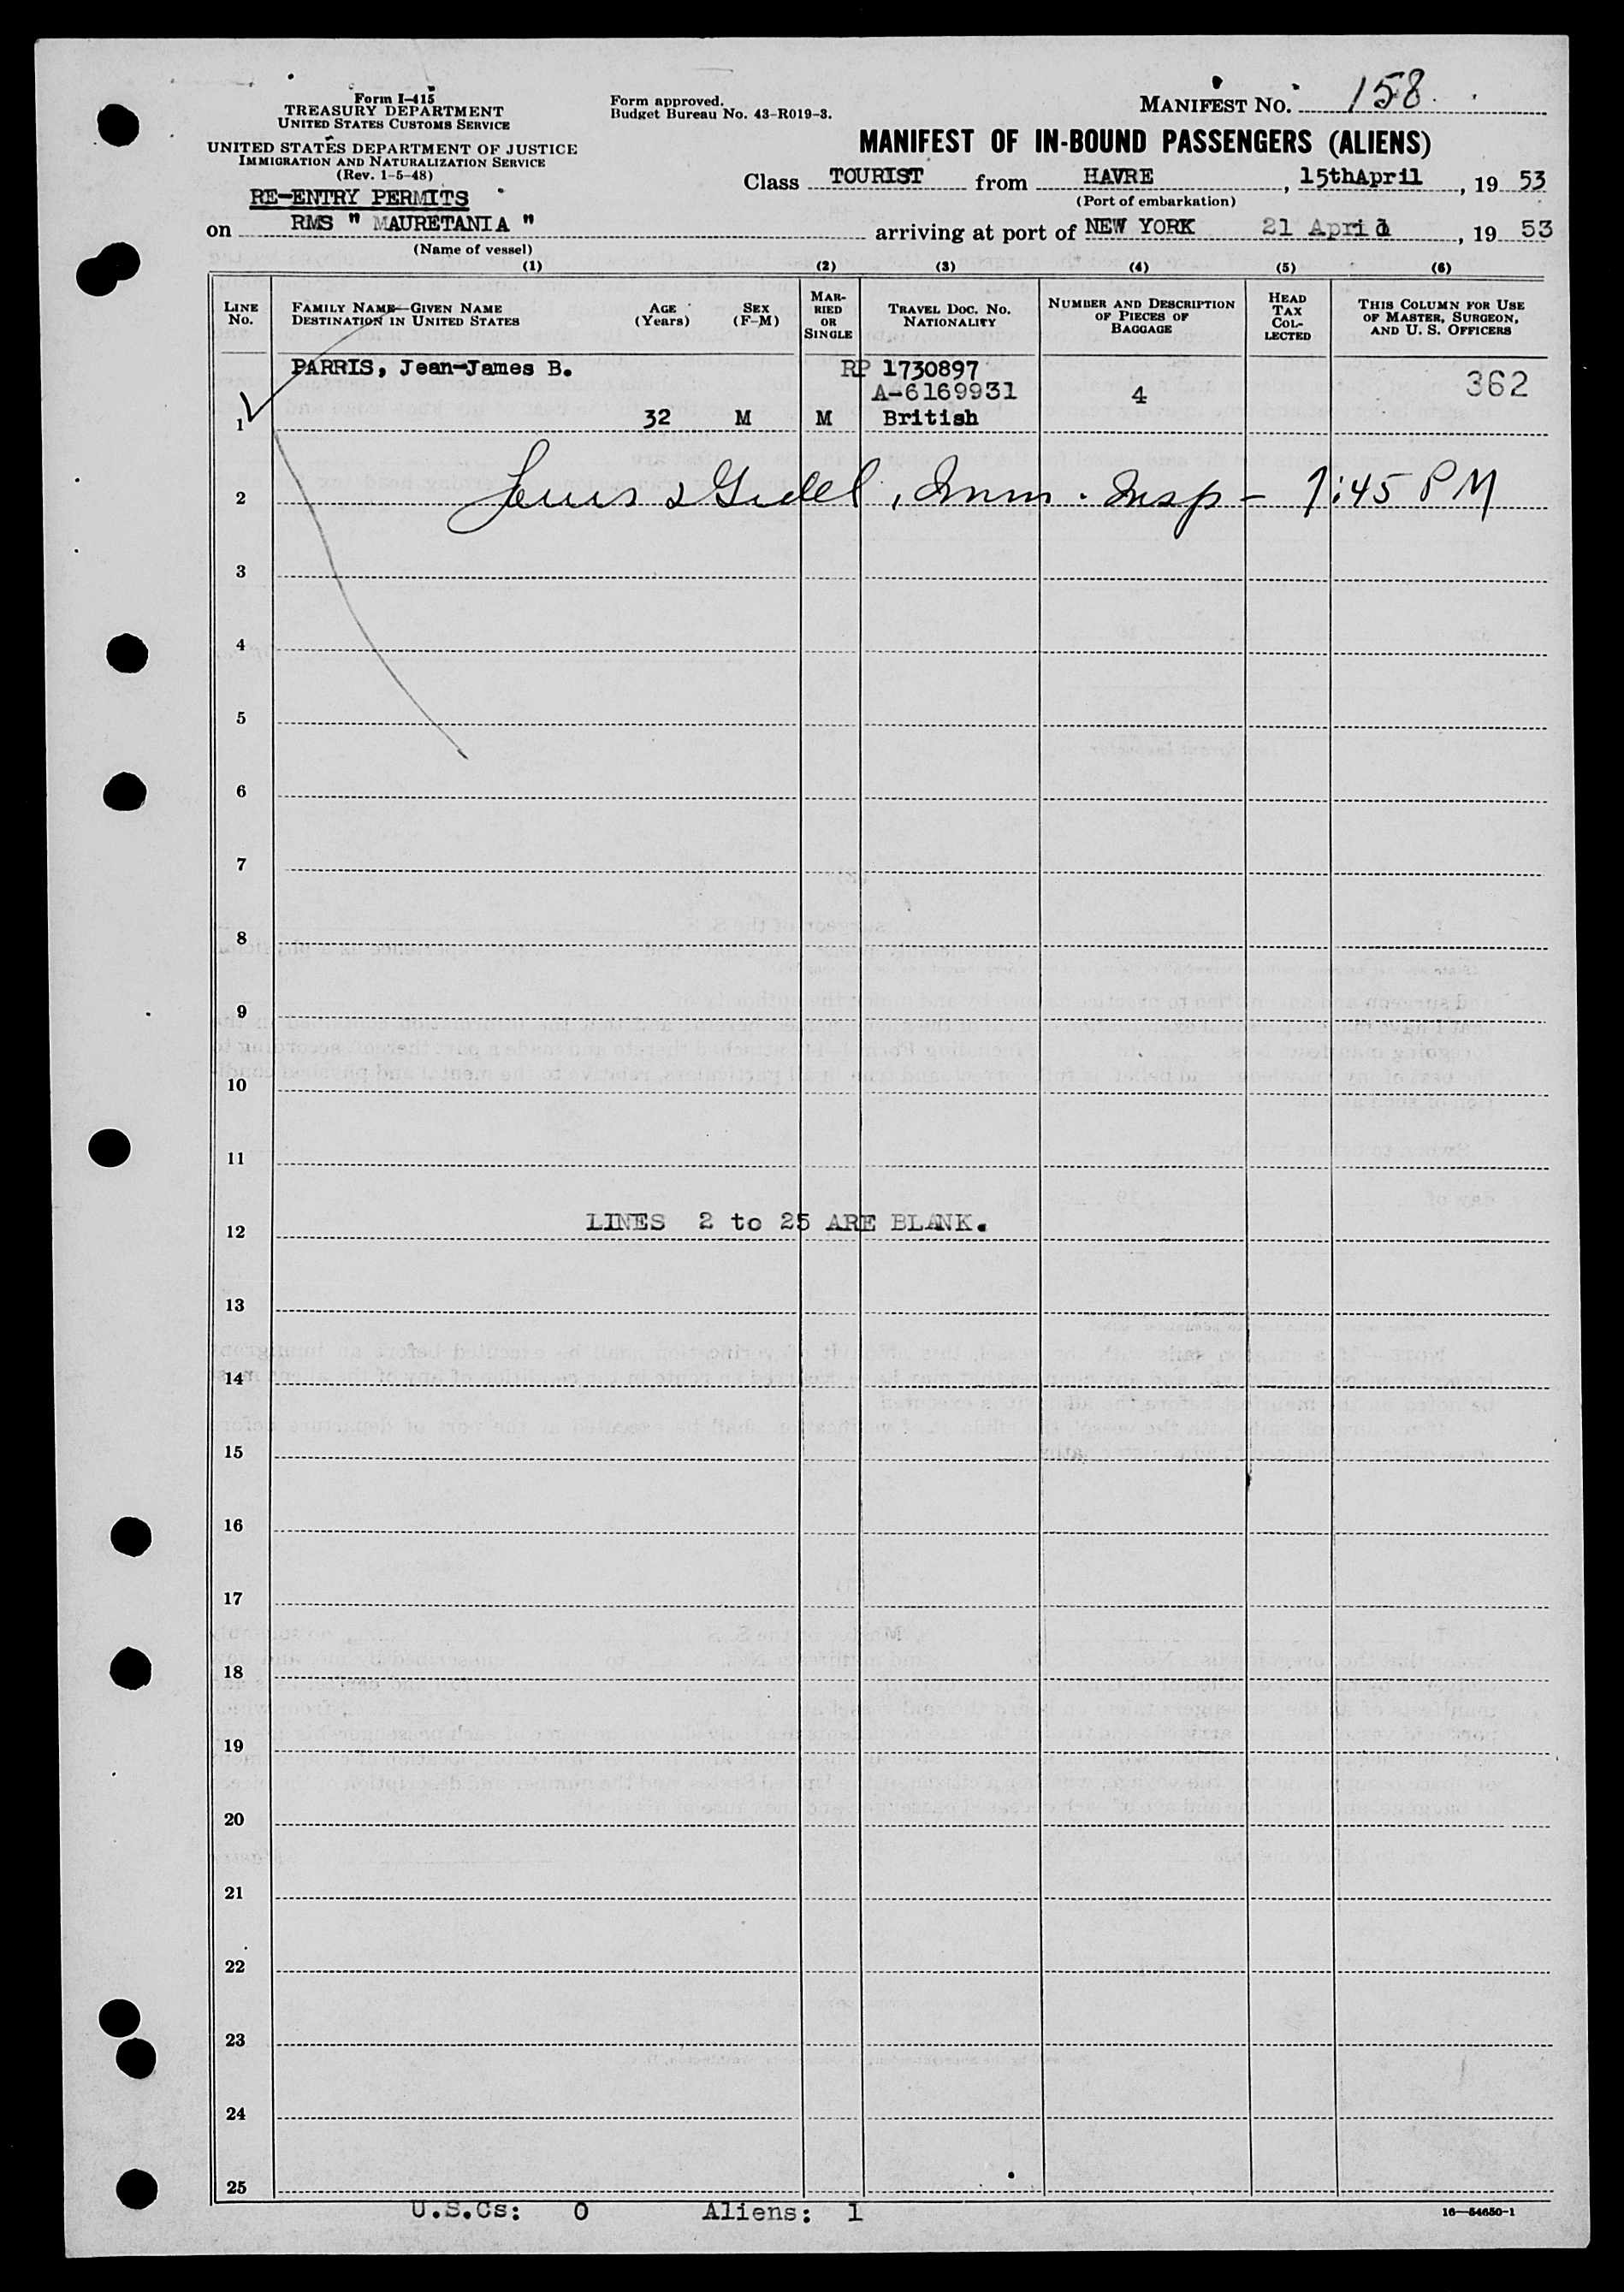 Form I-415
TREASURY DEPARTMENT
UNITED STATES CUSTOMS SERVICE
UNITED STATES DEPARTMENT OF JUSTICE
IMMIGRATION AND NATURALIZATION SERVICE
(Rev. 1-5-48)
RE-ENTRY PERMITS
Form approved.
Budget Bureau No. 43-R019-3.
MANIFEST NO. 158
MANIFEST OF IN-BOUND PASSENGERS (ALIENS)
Class TOURIST from HAVRE, 15thApril, 19 53
(Port of embarkation)
on RMS " MAURETANIA " arriving at port of NEW YORK 21 April, 19 53
(Name of vessel)
(1) (2) (3) (4) (5) (6)
LINE NO.
FAMILY NAME—GIVEN NAME
DESTINATION IN UNITED STATES
AGE (Years)
SEX (F-M)
MARRIED OR SINGLE
TRAVEL DOC. NO. NATIONALITY
NUMBER AND DESCRIPTION OF PIECES OF BAGGAGE
HEAD TAX COLLECTED
THIS COLUMN FOR USE OF MASTER, SURGEON, AND U. S. OFFICERS
PARRIS, Jean-James B. RP 1730897
A-6169931 4 362
1 32 M M British
2 Immn. Insp - :45 PM
3
4
5
6
7
8
9
10
11
12 LINES 2 to 25 ARE BLANK.
13
14
15
16
17
18
19
20
21
22
23
24
25
U.S.Cs: 0 Aliens: 1
16—54650-1